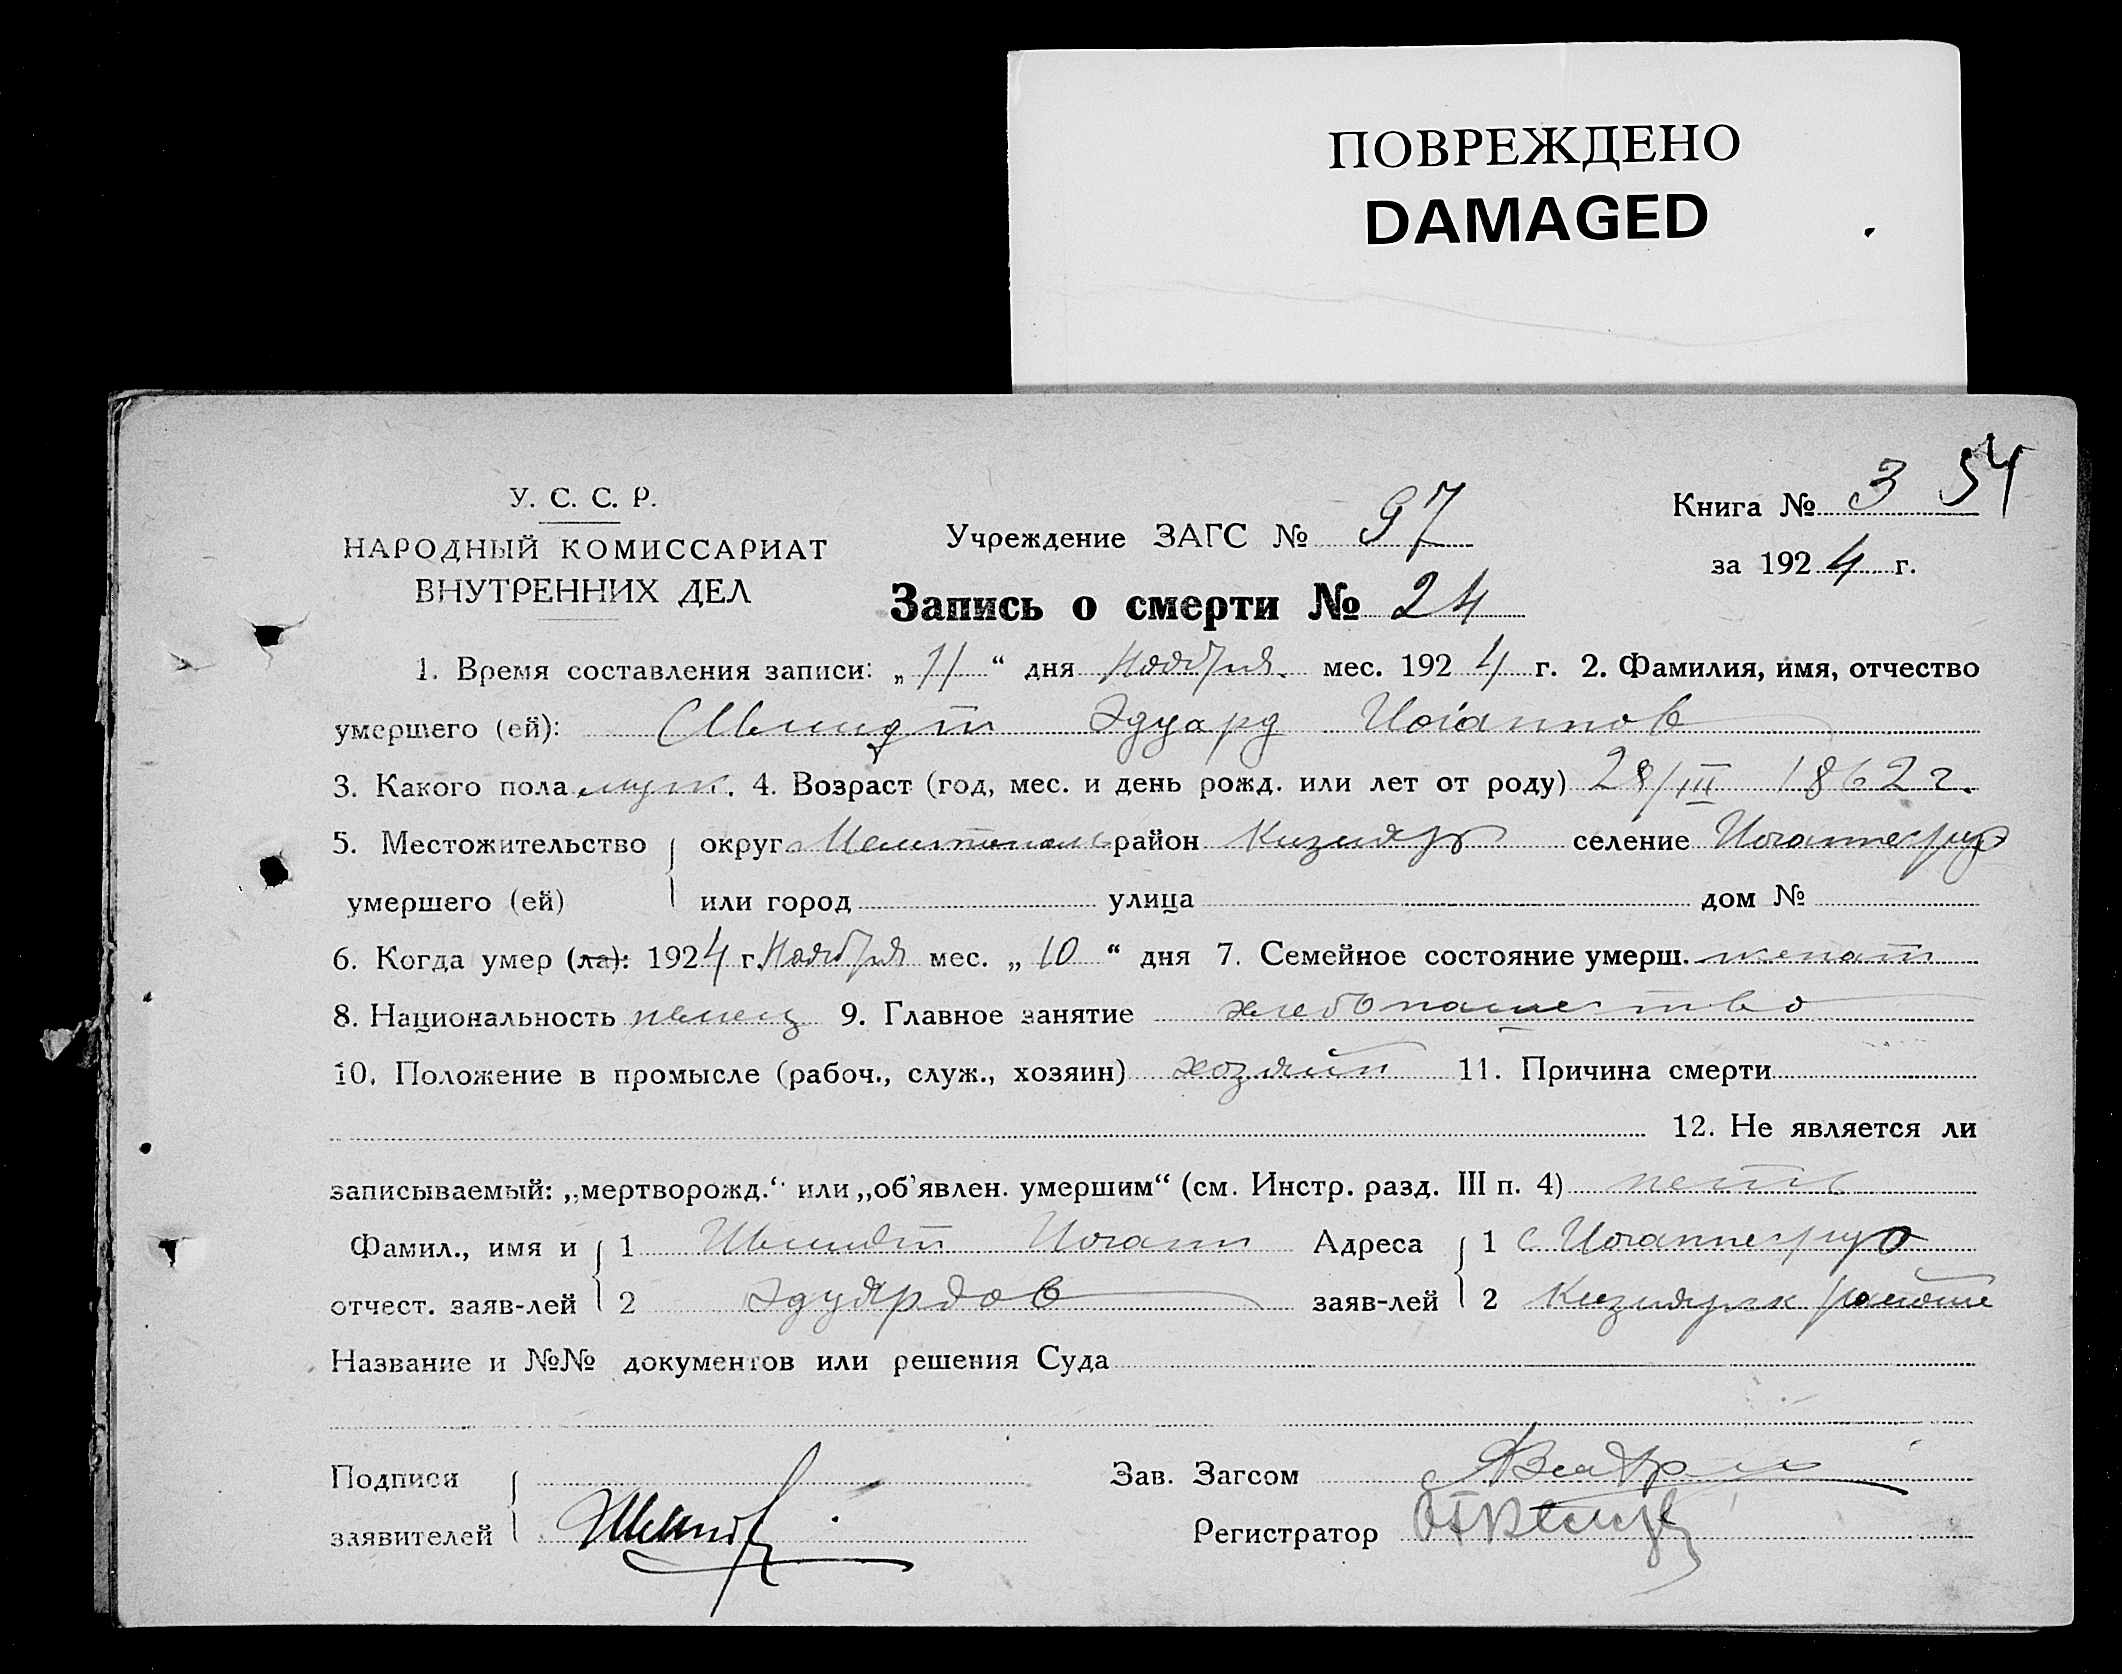 ПОВРЕЖДЕНО
DAMAGED
54
У. С. С. Р.
НАРОДНЫЙ КОМИССАРИАТ
ВНУТРЕННИХ ДЕЛ
Учреждение ЗАГС № 97
Книга № 3
за 1924 г.
Запись о смерти № 24
1. Время составления записи: „11“ дня Ноября мес. 1924 г. 2. Фамилия, имя, отчество
умершего (ей): Шмидт Эдуард Иоганнов
3. Какого пола муж. 4. Возраст (год, мес. и день рожд. или лет от роду) 28/III 1862 г.
5. Местожительство округ Мелитополь район Кизияр селение Иоганнесруэ
умершего (ей) или город улица дом №
6. Когда умер (ла): 1924 г. Ноября мес. „10“ дня 7. Семейное состояние умерш. женат
8. Национальность немец 9. Главное занятие хлебопашество
10. Положение в промысле (рабоч., служ., хозяин) хозяин 11. Причина смерти
12. Не является ли
записываемый: „мертворожд.“ или „об'явлен. умершим“ (см. Инстр. разд. III п. 4) нетъ
Фамил., имя и 1 Шмидт Иоганн Адреса 1 с Иоганнесруэ
отчест. заяв-лей 2 Эдуардов заяв-лей 2 Кизиярск районе
Название и №№ документов или решения Суда
Подписи Зав. Загсом
заявителей Шмидт Регистратор